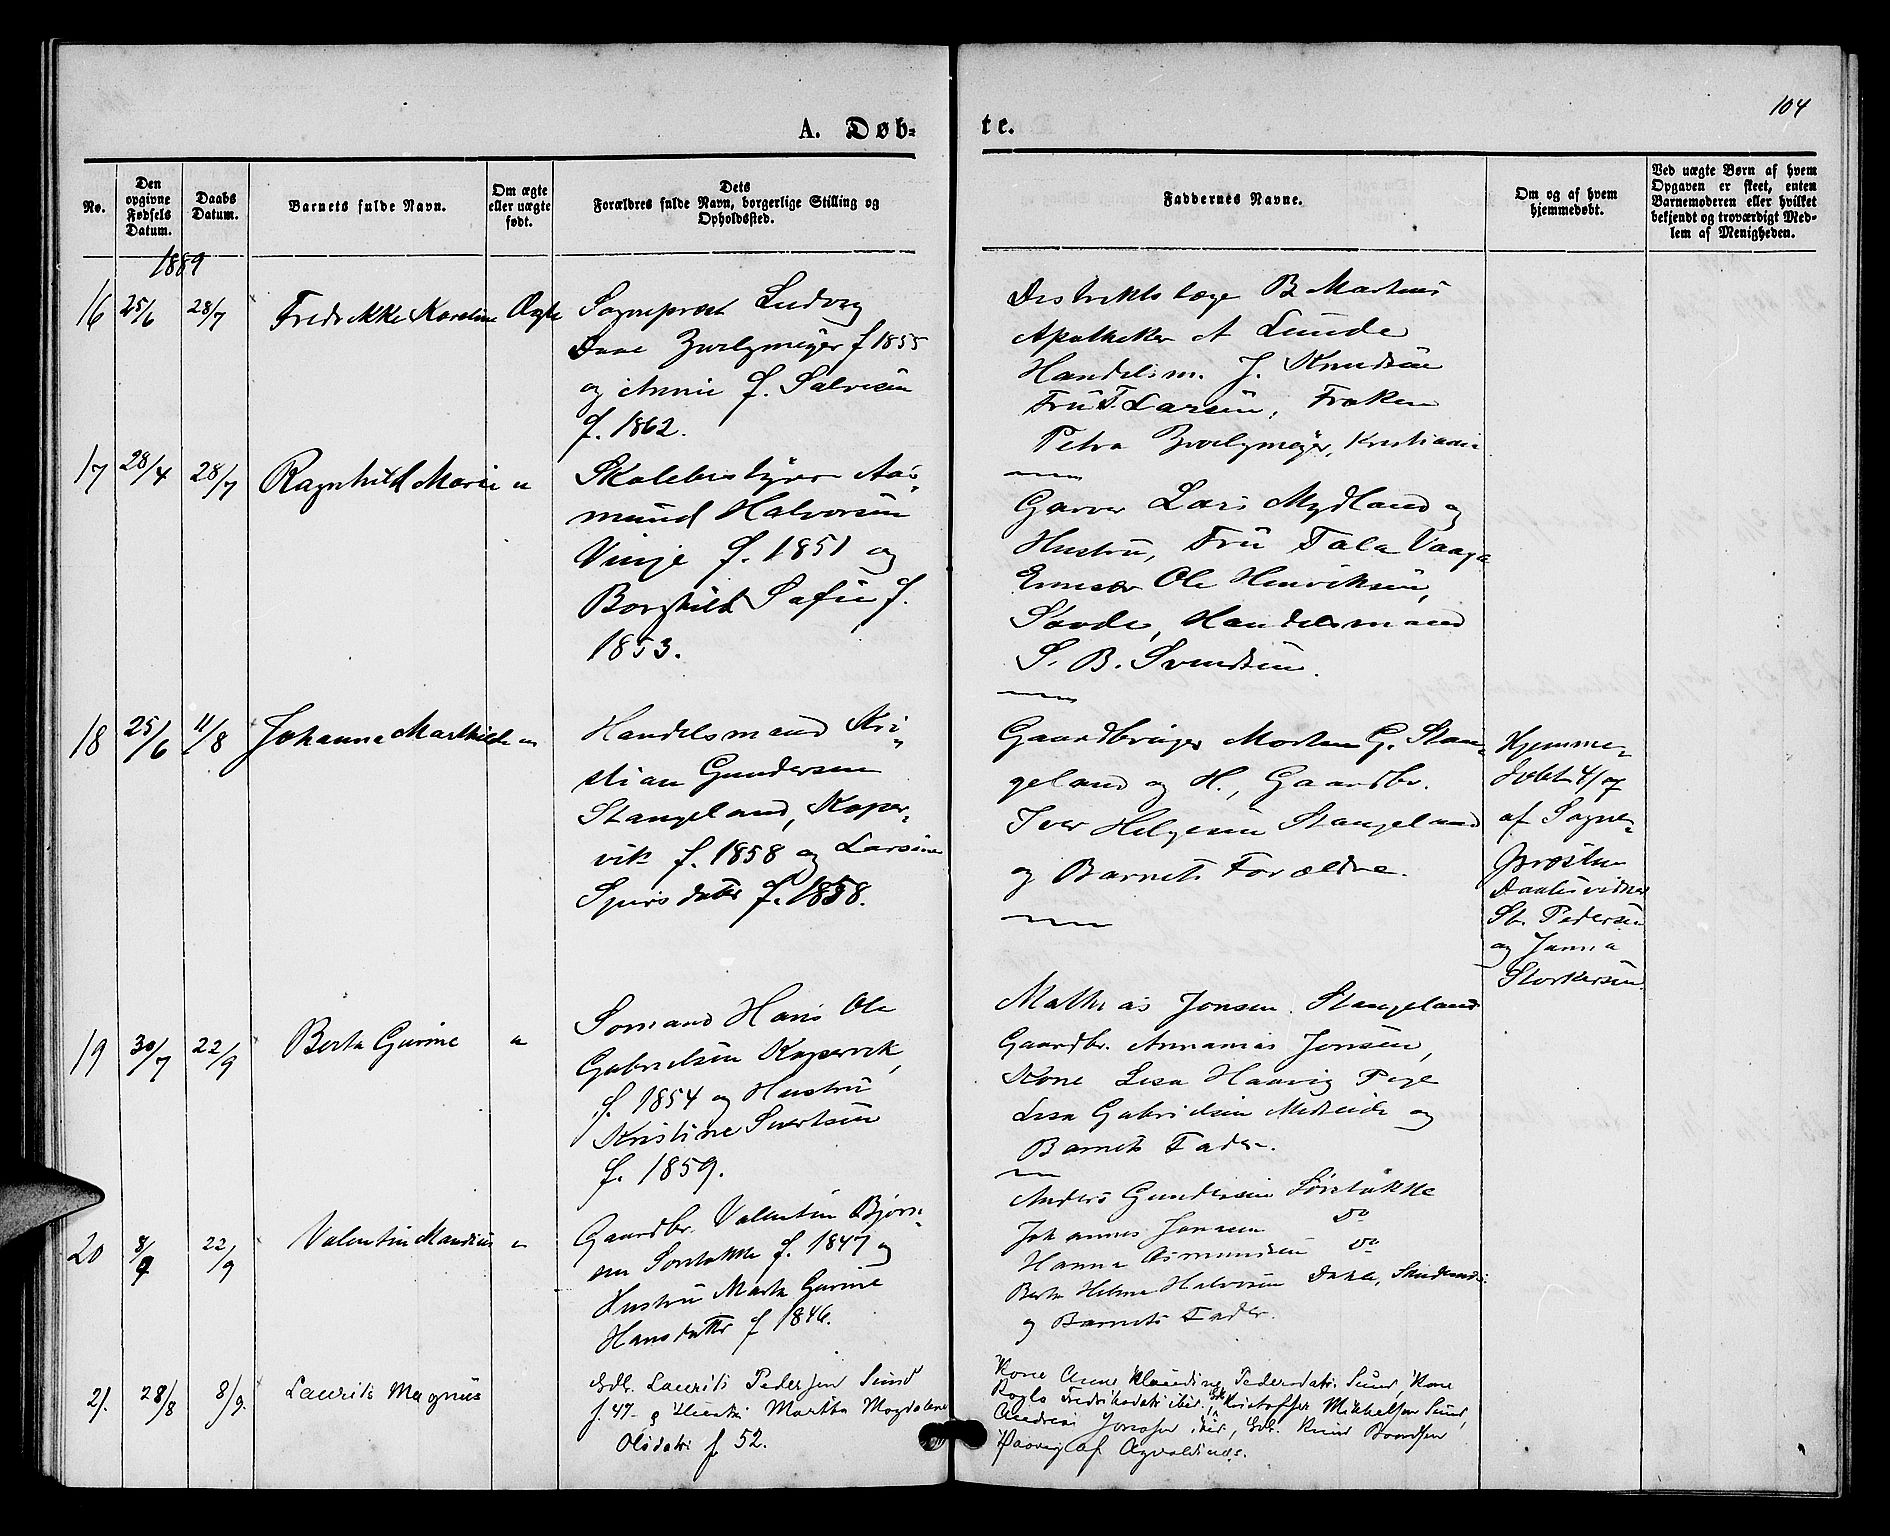 104
A. Døb-
te.
No.
Den
opgivne
Fødsels
Datum.
Daabs
Datum.
Barnets fulde Navn.
Om ægte
eller uægte
født.
Dets
Forældres fulde Navn, borgerlige Stilling og
Opholdssted.
Faddernes Navne.
Om og af hvem
hjemmedøbt.
Ved uægte Børn af hvem
Opgaven er skeet, enten
Barnemoderen eller hvilket
bekjendt og troværdigt Med-
lem af Menigheden.
1889
16 25/6 28/7 Fredrikke Karoline Ægte
Sogneprest Ludvig
Daae Zwilgmeyer f 1855
og Annie f. Salvesen
f. 1862.
Distriktslæge B Martens
Apotheker A Lunde
Handelsm. J. Knudsen
Fru T. Larsen, Frøken
Petra Zwilgmeyer, Kristiania
17 28/4 28/7 Ragnhild Marie "
Skolebestyrer Aa-
mund Halvorsen
Vinje f. 1851 og
Borghild Sofie f.
1853.
Garver Lars Mydland og
Hustru, Fru Tala Vaage
Ole Henriksen,
Handelsmand
S. B. Svendsen.
18 25/6 11/8 Johanne Marthilde "
Handelsmand Kri-
stian Gundersen
Stangeland, Koper-
vik f. 1858 og Larsine
Sjursdatter f. 1858.
Gaardbruger Morten G. Stan-
geland og H., Gaardbr.
Iver Helgesen Stangeland
og Barnets Forældre.
Hjemme-
døbt 4/07
af Sogne-
præsten
Daabsvidner
St. Pedersen
og Janna
Storkersen.
19 30/7 22/9 Berta Gurine "
Sømand Hans Ole
Gabrielsen Kopervik,
f. 1854 og Hustru
Kristine Sivertsen
f. 1859.
Mathias Jonsen Stangeland
Gaardbr. Annanias Jonsen,
Kone Lisa Haavig Pige
Lisa Gabrielsen Medheide og
Barnets Fader.
20 8/9 22/9 Valentin Mandius "
Gaardbr. Valentin Bjørn-
sen Sørstokke f. 1847 og
Hustru Marta Gurine
Hansdatter f 1846.
Anders Gundersen Sørstokke
Johannes Jonsen Do
Hanna Asmundsen Do
Berta Helene Halvorsen Dahle, Skudenes
og Barnets Fader.
21. 28/8 8/9. Laurits Magnus
Gdb. Laurits Pedersen Sund
f. 47. og Hustru Martha Magdalene
Olsdatr f 52.
Kone Anne Klaudine Pedersdatr. Sund, Kone
Ragla Fredriksdatr ibid. Gdb. Kristoffer Mikkelsen Sund,
Andreas Jonasen ibid, Gdb. Knud Baardsen
Haavig af Agvaldsnes.